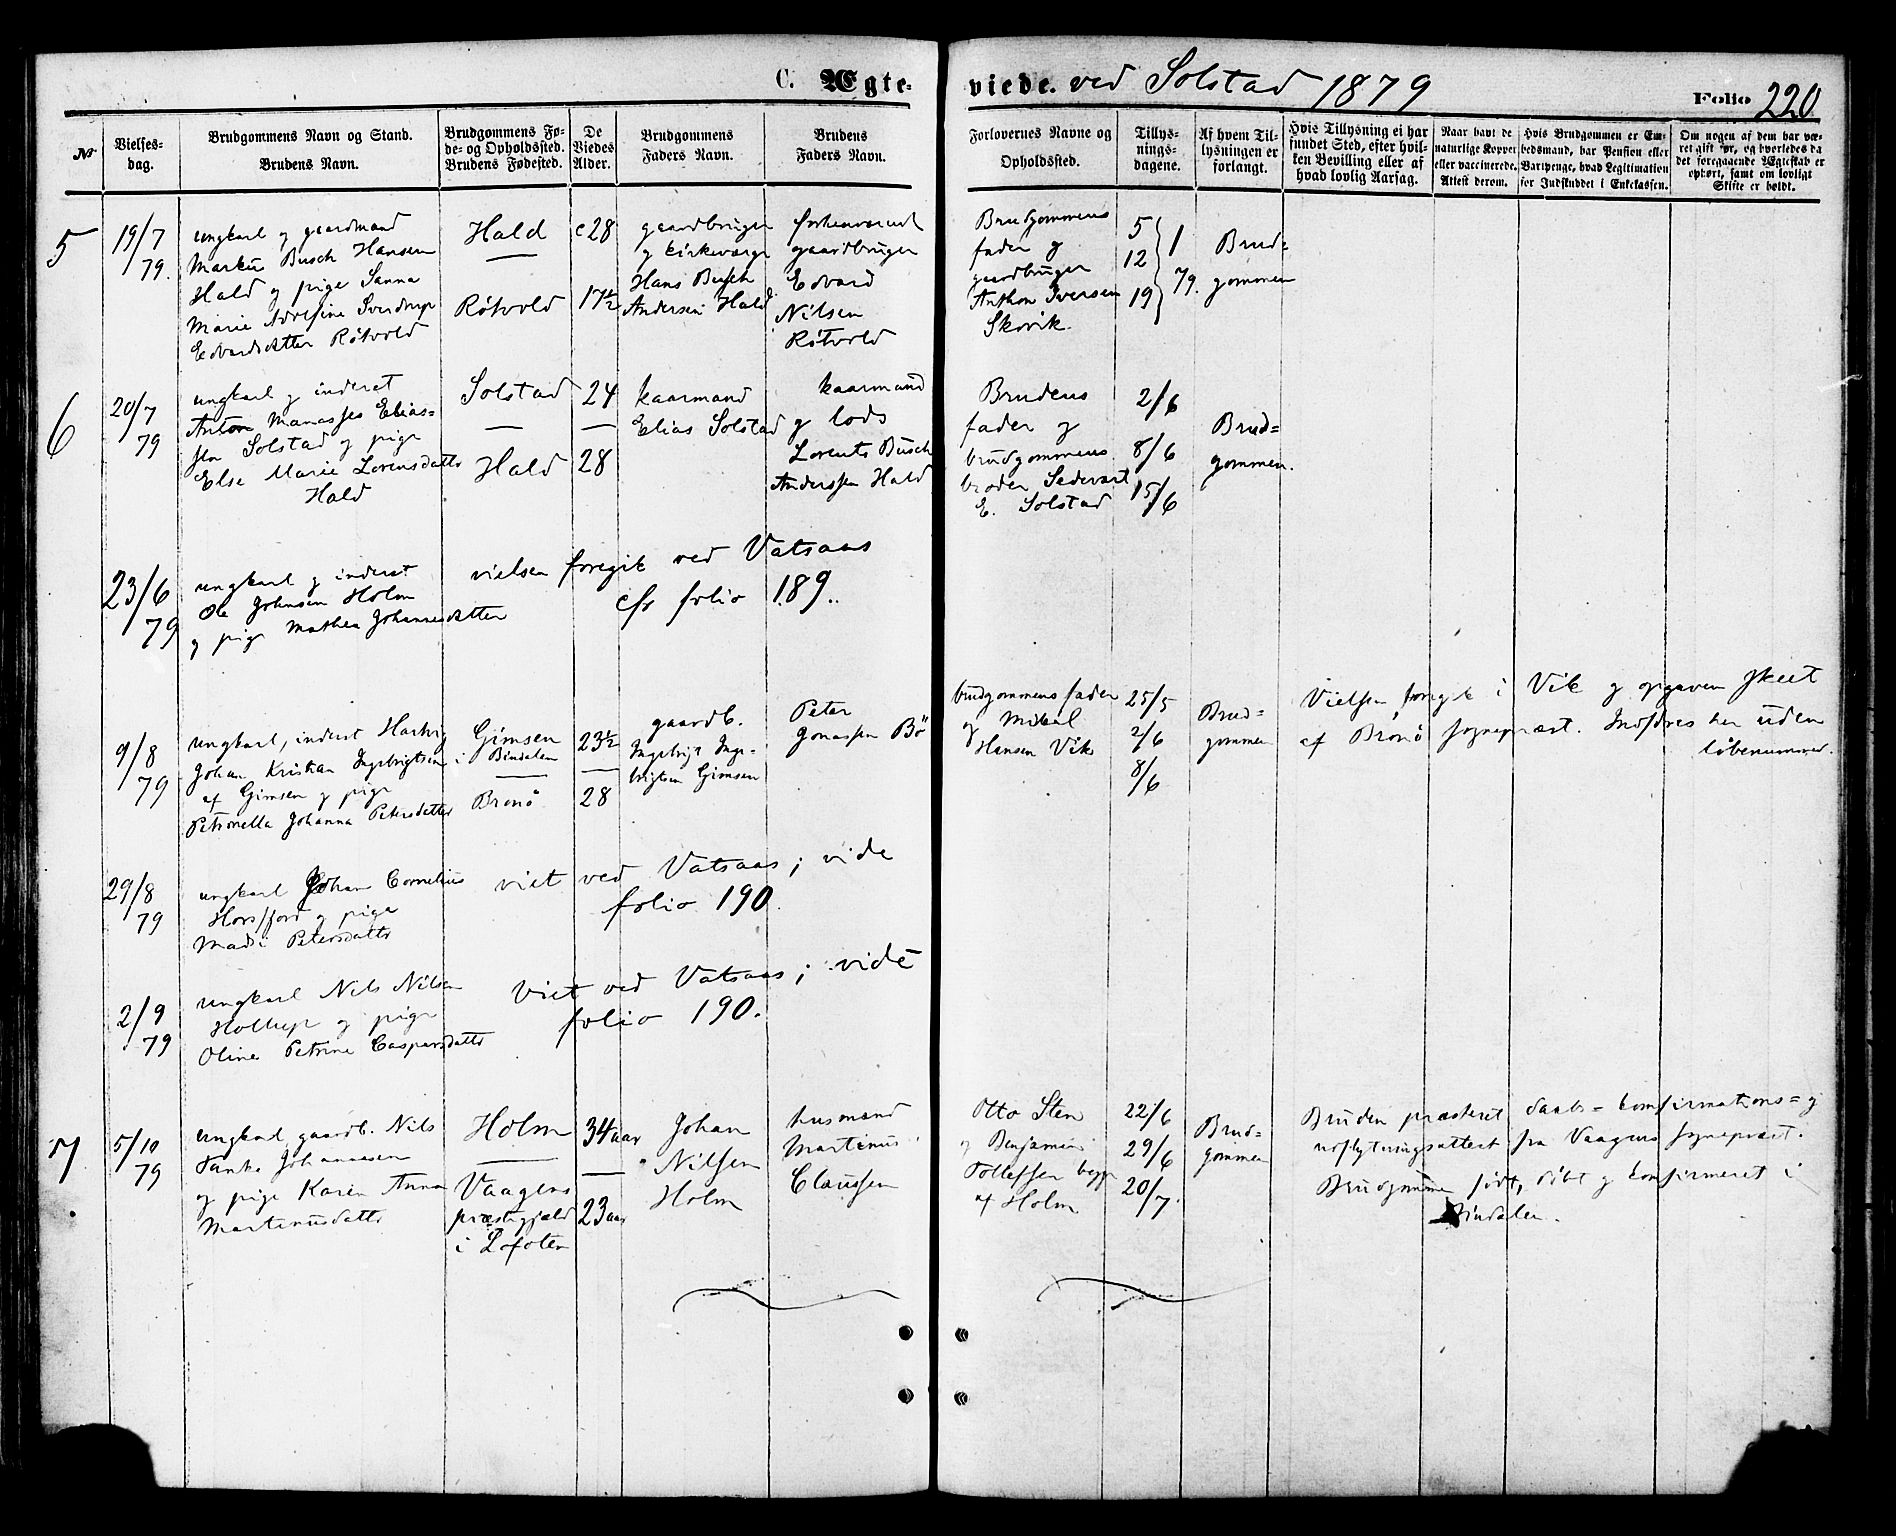 C. Ægte-
viede. ved Solstad 1879
Folio 220.
№
Vielses-
dag.
Brudgommens Navn og Stand.
Brudens Navn.
Brudgommens Fø-
de- og Opholdssted.
Brudens Fødested.
De
Viedes
Alder.
Brudgommens
Faders Navn.
Brudens
Faders Navn.
Forlovernes Navne og
Opholdssted.
Tillys-
nings-
dagene.
Af hvem Til-
lysningen er
forlangt.
Hvis Tillysning ei har
fundet Sted, efter hvil-
ken Bevilling eller af
hvad lovlig Aarsag.
Naar havt de
naturlige Kopper
eller vaccinerede.
Attest derom.
Hvis Brudgommen er Em-
bedsmand, har Pension eller
Vartpenge, hvad Legitimation
for Indskuddet i Enkekassen.
Om nogen af dem har væ-
ret gift før, og hvorledes da
det foregaaende Ægteskab er
ophørt, samt om lovligt
Skifte er holdt.
5
19/7
79.
ungkarl og gaardmand
Markus Busch Hansen
Hald og pige Sanna
Marie Adolfine Sverdrup
Edvardsdatter Røtvold
Hald
—
Røtvold
c 28
17½
gaardbruger
og kirkeværge
Hans Busch
Andersen Hald
forhenværende
gaardbruger
Edvard
Nilsen
Røtvold
Brudgommens
fader og
gaardbruger
Anthon Iversen
Skovik.
5
12
19
1
79.
Brud=
gommen
6
20/7
79
ungkarl og inderst
Anton Manasses Elias=
sen Solstad og pige
Else Marie Lorensdatter
Hald
Solstad
—
Hald
24
—
28
kaarmand
Elias Solstad
kaarmand
og lods
Lorents Busch
Anderssen Hald
Brudens
fader og
brudgommens
broder Sedevart
E. Solstad
2/6
8/6
15/6
Brud=
gommen.
23/6
79
ungkarl og inderst
Ole Johnsen Holm
og pige Mathea Johannesdatter
vielsen foregik ved Vatsaas
cfr folio 189.
9/8
79
ungkarl, inderst Hartvig
Johan Kristian Ingebrigtsen
af Gimsen og pige
Petronella Johanna Petersdatter
Gimsen
i Bindalen
—
Brønø
23½
—
28
gaardb.
Ingebrigt Inge-
brigtsen Gimsen
Peter
Jonassen Bø
brudgommens fader
og Mikal
Hansen Vik
25/5
2/6
8/6
Brud=
gommen
Vielsen foregik i Vik og opgaven skeet
af Brønø sognepræst. Indføres her uden
løbenummer.
29/8
79
ungkarl Johan Cornelius
Horsfjord og pige
Madsi Petersdatter
viet ved Vatsaas; vide
folio 190.
2/9
79
ungkarl Nils Nilsen
Holtup og pige
Oline Petrine Caspersdatter
Viet ved Vatsaas; vide
folio 190.
7
5/10
79
ungkarl gaardb. Nils
Tanke Johannesen
og pige Karen Anna
Martinusdatter
Holm
—
Vaagens
præstegjæld
i Lofoten
34 aar
—
23 aar
Johan
Nilsen
Holm
husmand
Martinus
Claussen
Otto Sten
og Benjamin
Tollefsen begge
af Holm
22/6
29/6
20/7.
Brud=
gommen
Bruden præsteret daabs= konfirmations= og
udflytningsattest fra Vaagens sognepræst.
Brudgommen født, døbt og konfirmeret i
Bindalen.